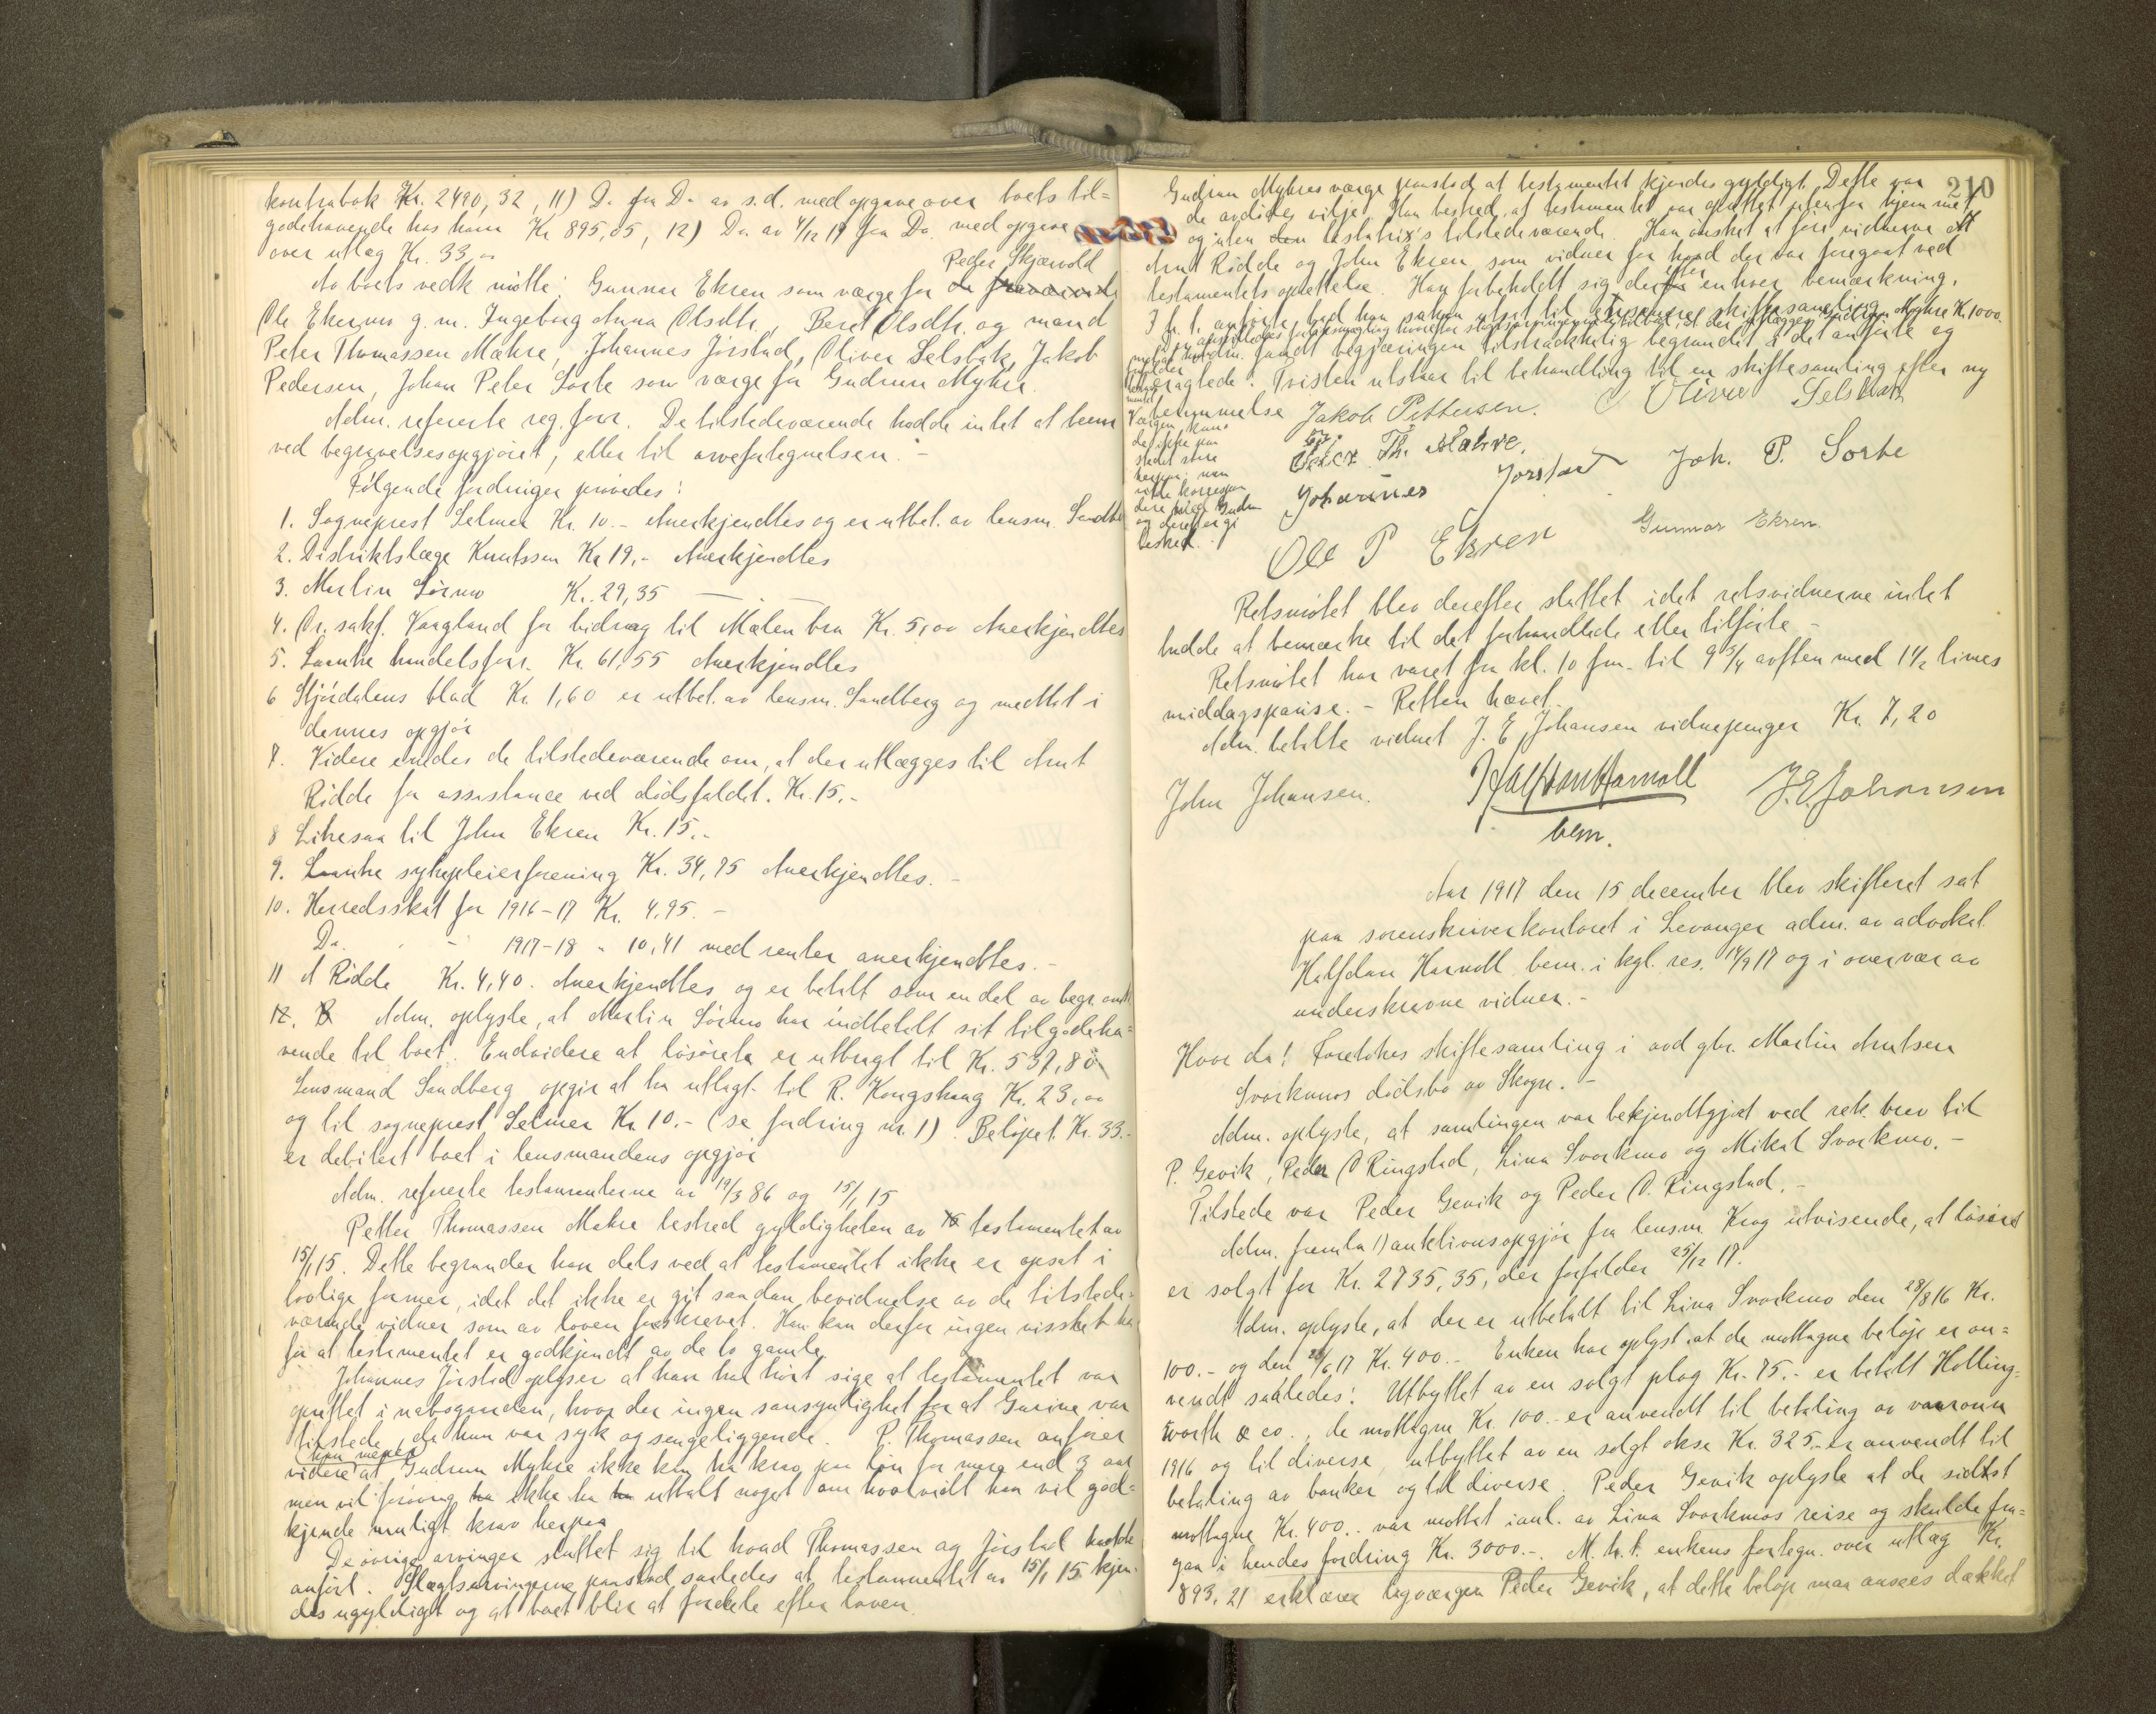 kontrabok Kr. 2490,32, 11) Do fra Do av s.d. med opgave over boets til=
godehavende hos ham Kr 895,05, 12) Do av 4/12 17 fra Do med opgave
over utlæg Kr. 33,00
Peder Skjærvold
Av boets vedk møtte: Gunnar Ekren som værge for
Ole Ekren g. m. Ingeborg Anna Olsdtr, Beret Olsdtr. og mand
Peter Thomassen Mækre, Johannes Jörstad, Oliver Selsbak, Jakob
Pedersen, Johan Peter Sorte som værge for Gudrun Mykre.
Adm. refererte reg. forr. De tilstedeværende hadde intet at bem
ved begravelsesopgjöret, eller til arvefortegnelsen. -
Følgende fordringer prövedes:
1. Sogneprest Selmer Kr. 10.- Anerkjendtes og er utbet. av lensm. Sandbe
2. Distriktslæge Knutssen Kr 19,- Anerkjendtes
3. Martin Sörmo Kr. 29,35 — . —
4. Or. sakf. Vaagland for bidrag til Mælen bru Kr. 5,00 Anerkjendtes
5. Laanke handelsforr. Kr. 61,55 Anerkjendtes
6 Stjördalens blad Kr. 1,60 er utbet. av lensm. Sandberg og medtat i
dennes opgjör
7. Videre enedes de tilstedeværende om, at der utlægges til Arnt
Ridde for assistance ved dödsfaldet. Kr. 15.-
8 Likesaa til John Ekren Kr. 15.-
9. Laanke sykepleierforening Kr. 34,75 Anerkjendtes. -
10. Herredsskat for 1916-17 Kr. 4,95. -
Do. - 1917-18 " 10,41 med renter anerkjendtes. -
11 A Ridde Kr. 4,40. Anerkjendtes og er betalt som en del av begr. omk
12. Adm. oplyste, at Martin Sörmo har indbetalt sit tilgodeha=
vende til boet. Endvidere at lösöreta er utbragt til Kr. 537,80
Lensmand Sandberg opgir at ha utlagt til R. Kongshaug Kr. 23,00
og til sogneprest Selmer Kr 10.- (se fordring nr. 1). Belöpet Kr. 33.-
er debitert boet i lensmandens opgjör
Adm. refererte testamenterne av 19/3 86 og 15/1 15
Petter Thomassen Mækre bestred gyldigheten av testamentet av
15/1 15. Dette begrunder han dels ved at testamentet ikke er opsat i
lovlige former, idet det ikke er git saadan bevidnelse av de tilstede-
værende vidner som av loven foreskrevet. Han kan derfor ingen visshet ha
for at testamentet er godkjendt av de to gamle.
Johannes Jörstad oplyser at han har hört sige at testamentet var
oprettet i nabogaarden, hvor der ingen sansynlighet for at Gurine var
tilstede, da hun var syk og sengeliggende. P. Thomassen anförer
han mener
videre at Gudrun Mykre ikke kan ha krav paa lön for mere end 3 aar
men vil forövrig ikke ha uttalt noget om hvorvidt han vil god=
kjende muligt krav herpaa
De övrige arvinger sluttet sig til hvad Thomassen og Jörstad hadde
anfört. Slægtsarvingerne paastod saaledes at testamentet av 15/1 15 kjen-
des ugyldigt og at boet blir at fordele efter loven.
210
Gudrun Mykres værge paastod, at testamentet kjendes gyldigt. Dette var
de avdödes vilje. Han bestred, at testamentet var oprettet utenfor hjemmet
og uten testatrix's tilstedeværende. Han önsket at före vidnerne
Arnt Ridde og John Ekren som vidner for hvad der var foregaat ved
testamentets oprettelse. Han forbeholdt sig derefter enhver bemærkning.
I h. t. anförte bad han saken utsat til en senere skiftesamling
Adm. fandt begjæringen tilstrækkelig begrundet i det anförte og
Tvisten utstaar til behandling til en skiftesamling efter ny
berammelse
Værgen kun-
de ikke paa
stedet svare
herpaa, men
vilde korrespon
dere med Gudrun
og derefter gi
besked. -
Jakob Pettersen. Oliver Selsbak
Peter Th. Makre. Joh. P. Sorte
Johannes Jorstad
Ole P Ekren Gunnar Ekren.
Retsmötet blev derefter sluttet idet retsvidnerne intet
hadde at bemærke til det forhandlede eller tilförte. -
Retsmötet har varet fra kl. 10 fm. til 9 3/4 aften med 1 1/2 times
middagspause. - Retten hævet.
Adm. betalte vidnet J. E. Johansen vidnepenger Kr. 7,20
John Johansen. Halfdan Harnoll J. E. Johansen
bem.
Aar 1917 den 15 december blev skifteret sat
paa sorenskriverkontoret i Levanger adm. av advokat
Halfdan Harnoll bem. i kgl. res. 14/9 17 og i overvær av
underskrevne vidner. -
Hvor da! Foretokes skiftesamling i avd gbr. Martin Arntsen
Svorkmos dödsbo av Skogn. -
Adm. oplyste, at samlingen var bekjendtgjort ved rek. brev til
P. Gevik, Peder O Ringstad, Lina Svorkmo og Mikal Svorkmo. -
Tilstede var Peder Gevik og Peder O. Ringstad. -
Adm. fremla 1) auktionsopgjör fra lensm. Krog utvisende, at lösöret
er solgt for Kr. 2735,35, der forfalder 25/12 17.
Adm. oplyste, at der er utbetalt til Lina Svorkmo den 28/8 16 Kr.
100.- og den 28/6 17 Kr. 400.- Enken har oplyst at de mottagne belöp er an=
vendt saaledes: Utbyttet av en solgt plog Kr. 75.- er betalt Holling=
worth & co., de mottagne Kr. 100.- er anvendt til betaling av vaaronn
1916 og til diverse, utbyttet av en solgt okse Kr. 325.- er anvendt til
betaling av banker og til diverse. Peder Gevik oplyste at de sidtst
mottagne Kr. 400.- var mottat i anl. av Lina Svorkmos reise og skulde fra-
gaa i hendes fordring Kr. 3000.-. M. h. t. enkens fortegn. over utlæg Kr.
893,21 erklærer lagværgen Peder Gevik, at dette belöp maa ansees dækket